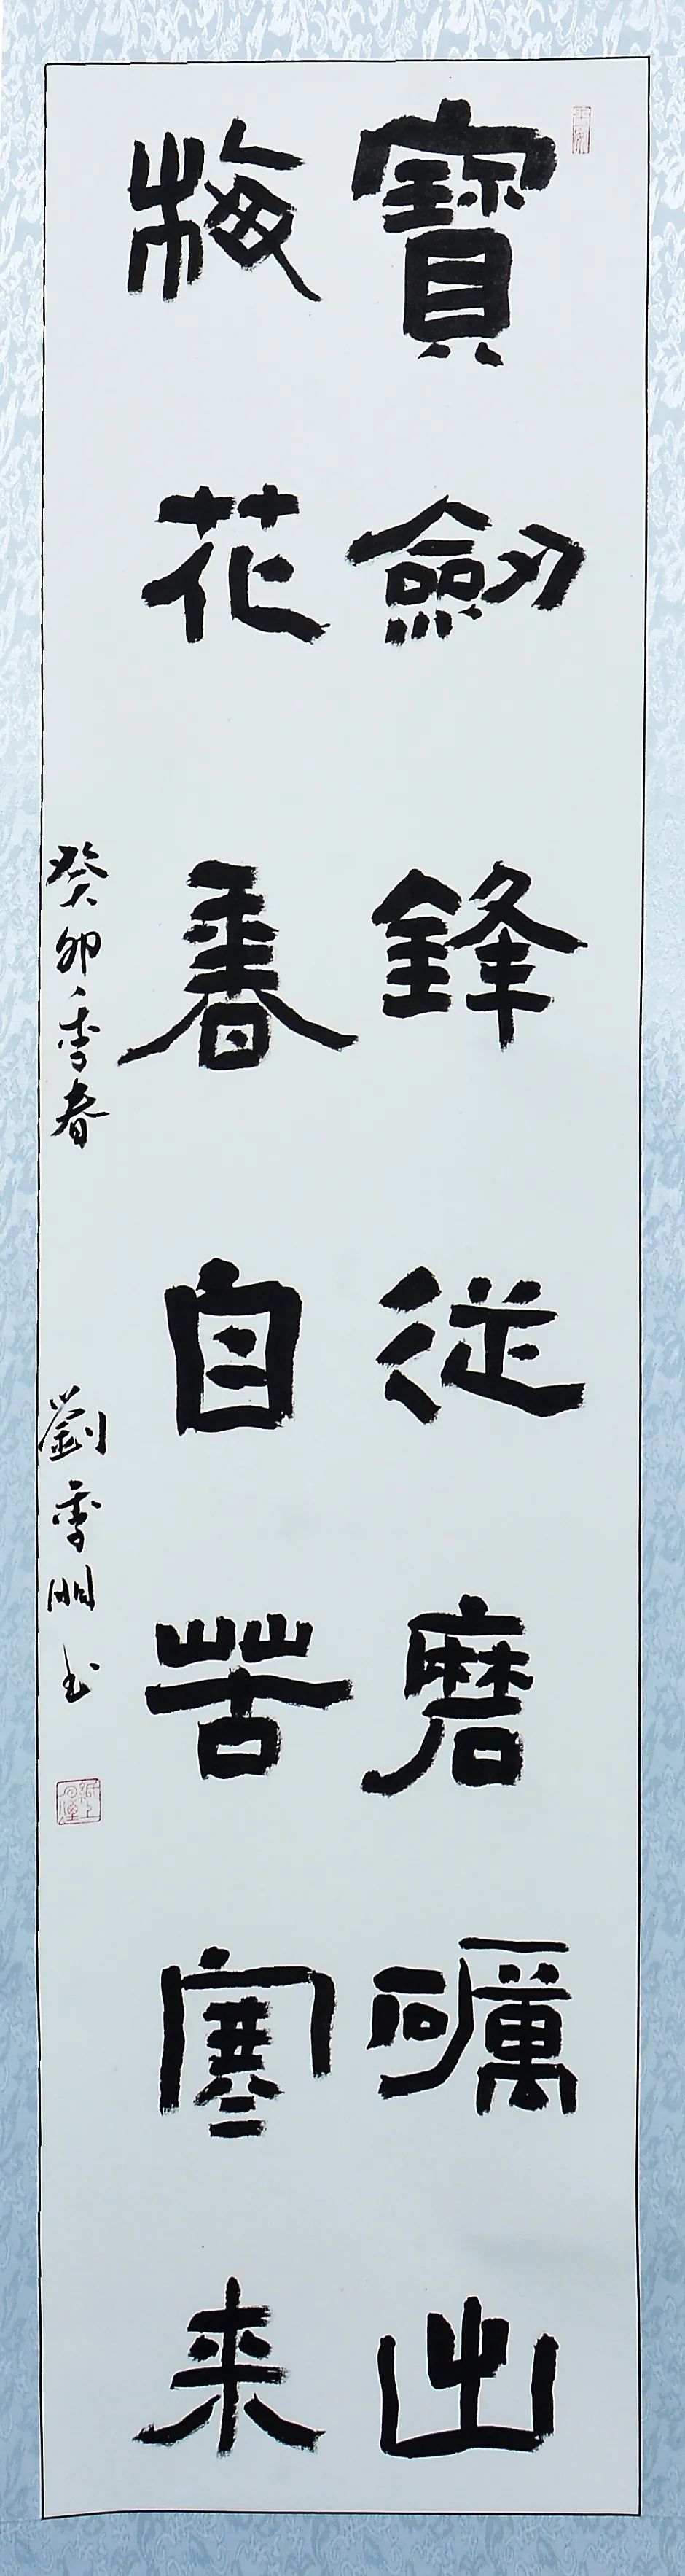 寶劔鋒從磨礪出
梅花香自苦寒来
癸卯季春
劉季明书